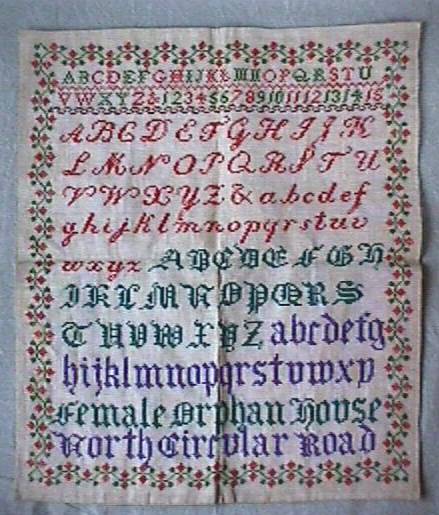 ABCDEFGHIJKLMNOPQRSTU
VWXYZ&12345678910111213141516
ABCDEFGHIJK
LMNOPQRSTU
VWXYZ&abcdef
ghijklmnopqrstuv
wxyz ABCDEFGH
IKLMNOPQRS
TUVWXYZ abcdefg
hijklmnopqrstuwxy
Female Orphan House
North Circular Road